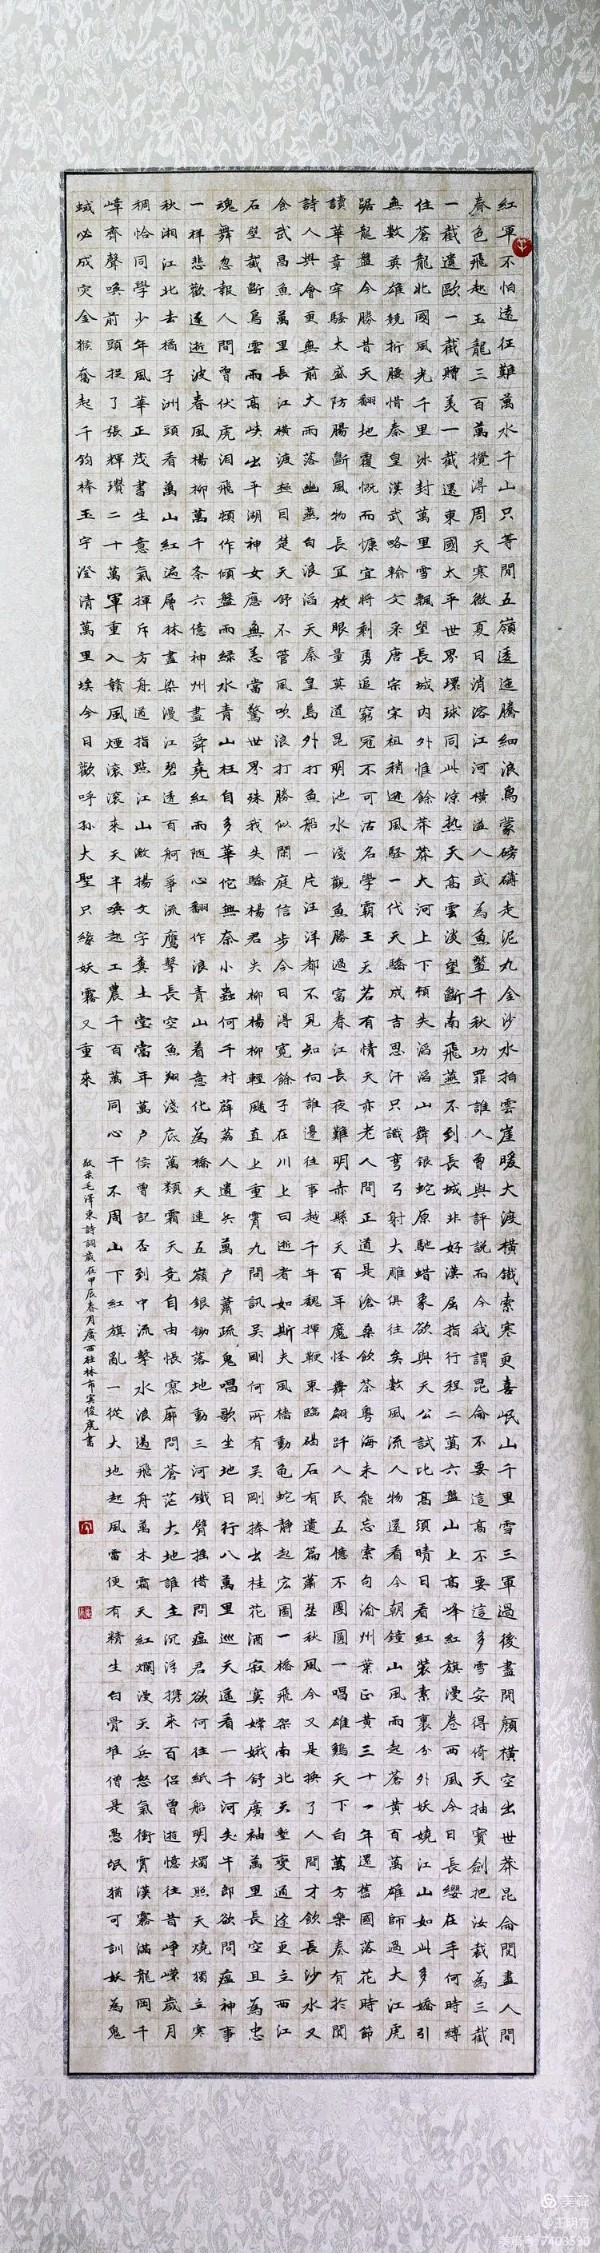 紅軍不怕遠征難萬水千山只等閒五嶺逶迤騰細浪烏蒙磅礴走泥丸金沙水拍雲崖暖大渡橫鐵索寒更喜岷山千里雪三軍過後盡開顏橫空出世莽昆侖閱盡人間
春色飛起玉龍三百萬攪得周天寒徹夏日消溶江河橫溢人或為魚鱉千秋功罪誰人曾與評說而今我謂昆侖不要這高不要這多雪安得倚天抽寶劍把汝裁為三截
一截遺歐一截贈美一截還東國太平世界環球同此涼熱天高雲淡望斷南飛燕不到長城非好漢屈指行程二萬六盤山上高峰紅旗漫卷西風今日長纓在手何時縛
住蒼龍北國風光千里冰封萬里雪飄望長城內外惟餘莽莽大河上下頓失滔滔山舞銀蛇原馳蜡象欲與天公試比高須晴日看紅裝素裹分外妖嬈江山如此多嬌引
無數英雄競折腰惜秦皇漢武略輸文采唐宗宋祖稍遜風騷一代天驕成吉思汗只識彎弓射大雕俱往矣數風流人物還看今朝鐘山風雨起蒼黃百萬雄師過大江虎
踞龍盤今勝昔天翻地覆慨而慷宜將剩勇追窮寇不可沽名學霸王天若有情天亦老人間正道是滄桑飲茶粵海未能忘索句渝州葉正黃三十一年還舊國落花時節
讀華章牢騷太盛防腸斷風物長宜放眼量莫道昆明池水淺觀魚勝過富春江長夜難明赤縣天百年魔怪舞翩躚人民五億不團圓一唱雄鷄天下白萬方樂奏有於闐
詩人興會更無前大雨落幽燕白浪滔天秦皇島外打魚船一片汪洋都不見知向誰邊往事越千年魏揮鞭東臨碣石有遺篇蕭瑟秋風今又是換了人間才飲長沙水又
食武昌魚萬里長江橫渡極目楚天舒不管風吹浪打勝似閑庭信步今日得寬餘子在川上曰逝者如斯夫風檣動龜蛇靜起宏圖一橋飛架南北天塹變通途更立西江
石壁截斷巫雲雨高峽出平湖神女應無恙當驚世界殊我失驕楊君失柳楊柳輕颺直上重霄九問訊吳剛何所有吳剛捧出桂花酒寂寞嫦娥舒廣袖萬里長空且為忠
魂舞忽報人間曾伏虎淚飛頓作傾盤雨綠水青山枉自多華佗無奈小蟲何千村薜荔人遺矢萬户蕭疏鬼唱歌坐地日行八萬里巡天遥看一千河失牛郎欲問瘟神事
一样悲歡逐逝波春風楊柳萬千条六億神州盡舜堯紅雨随心翻作浪青山着意化為橋天連五嶺銀鋤落地動三河鐵臂搖借問瘟君欲何往紙船明燭照天燒獨立寒
秋湘江北去橘子洲頭看萬山紅遍層林盡染漫江碧透百舸爭流鷹擊長空魚翔淺底萬類霜天竞自由悵寥廓問蒼茫大地誰主沉浮携来百侶曾遊憶往昔崢嶸歲月
稠恰同學少年風華正茂書生意氣揮斥方遒指點江山激揚文字糞土當年萬户侯曾記否到中流擊水浪遏飛舟萬木霜天紅爛漫天兵怒氣衝霄漢霧滿龍岡千
嶂齊聲喚前頭捉了張輝瓚二十萬軍重入贛風煙滚滚来天半喚起工農千百萬同心干不周山下紅旗亂一從大地起風雷便有精生白骨堆僧是愚氓猶可訓妖為鬼
蜮必成灾金猴奮起千鈞棒玉宇澄清萬里埃今日歡呼孫大聖只緣妖霧又重來
敬录毛澤東詩詞歲在甲辰春月廣西桂林市
美篇
@王明方
美篇号:7403590